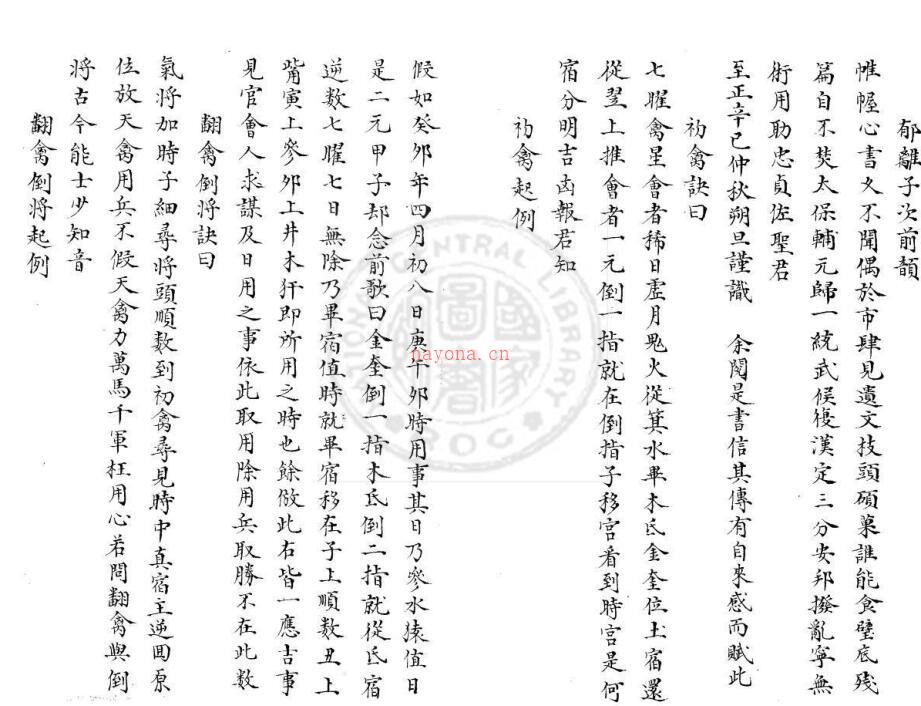 郁離子次前韻
帷幄心書久不聞偶於市肆見遺文枝頭碩菓誰能食壁底殘
篇自不焚太保輔元歸一統武侯復漢定三分安邦撥亂寧無
術用助忠貞佐聖君
至正辛巳仲秋朔旦謹識 余閱是書信其傳有自來感而賦此
初禽訣曰
七曜禽星會者稀日虛月鬼火從箕水畢木氐金奎位土宿還
從翌上推會者一元倒一指就在倒指子移宮看到時宮是何
宿分明吉凶報君知
初禽起例
假如癸卯年四月初八日庚午卯時用事其日乃參水猿值日
是二元甲子却念前歌曰金奎倒一指木氐倒二指就從氐宿
逆数七曜七日無除乃畢宿值時就畢宿移在子上順数丑上
觜寅上參卯上井木犴即所用之時也餘倣此右皆一應吉事
見官會人求謀及日用之事依此取用除用兵取勝不在此数
翻禽倒將訣曰
氣將加時子細尋將頭順数到初禽尋見時中真宿主逆回原
位放天禽用兵不假天禽力萬馬千軍枉用心若問翻禽與倒
將古今能士少知音
翻禽倒將起例
nayona.cn
NATIONAL CENTRAL LIBRARY
ROC
國家圖書館